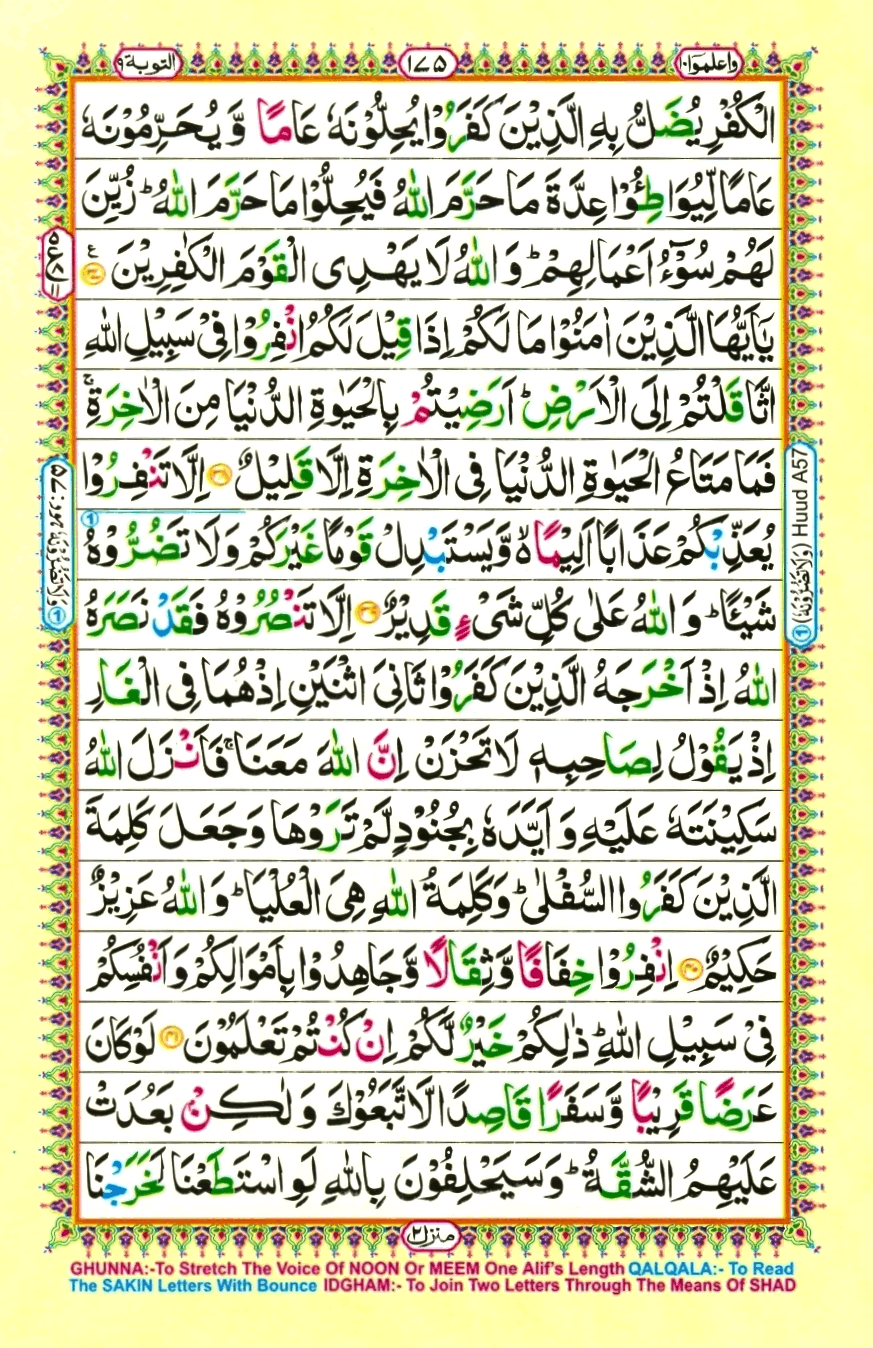 واعلموا ١٠
١٧٥
التوبة ٩
الْكُفْرِ يُضَلُّ بِهِ الَّذِيْنَ كَفَرُوْا يُحِلُّوْنَهٗ عَامًا وَّ يُحَرِّمُوْنَهٗ
عَامًا لِّيُوَاطِـُٔوْا عِدَّةَ مَا حَرَّمَ اللّٰهُ فَيُحِلُّوْا مَا حَرَّمَ اللّٰهُ ؕ زُيِّنَ
لَهُمْ سُوْٓءُ اَعْمَالِهِمْ ؕ وَ اللّٰهُ لَا يَهْدِی الْقَوْمَ الْكٰفِرِيْنَ ۝۳۷ ع
يٰۤاَيُّهَا الَّذِيْنَ اٰمَنُوْا مَا لَكُمْ اِذَا قِيْلَ لَكُمُ انْفِرُوْا فِیْ سَبِيْلِ اللّٰهِ
اثَّاقَلْتُمْ اِلَی الْاَرْضِ ؕ اَرَضِيْتُمْ بِالْحَيٰوةِ الدُّنْيَا مِنَ الْاٰخِرَةِ ۚ
فَمَا مَتَاعُ الْحَيٰوةِ الدُّنْيَا فِی الْاٰخِرَةِ اِلَّا قَلِيْلٌ ۝۳۸ اِلَّا تَنْفِرُوْا
يُعَذِّبْكُمْ عَذَابًا اَلِيْمًا ۙ۬ وَّ يَسْتَبْدِلْ قَوْمًا غَيْرَكُمْ وَ لَا تَضُرُّوْهُ
شَيْـًٔا ؕ وَ اللّٰهُ عَلٰی كُلِّ شَیْءٍ قَدِيْرٌ ۝۳۹ اِلَّا تَنْصُرُوْهُ فَقَدْ نَصَرَهُ
اللّٰهُ اِذْ اَخْرَجَهُ الَّذِيْنَ كَفَرُوْا ثَانِیَ اثْنَيْنِ اِذْ هُمَا فِی الْغَارِ
اِذْ يَقُوْلُ لِصَاحِبِهٖ لَا تَحْزَنْ اِنَّ اللّٰهَ مَعَنَا ۚ فَاَنْزَلَ اللّٰهُ
سَكِيْنَتَهٗ عَلَيْهِ وَ اَيَّدَهٗ بِجُنُوْدٍ لَّمْ تَرَوْهَا وَ جَعَلَ كَلِمَةَ
الَّذِيْنَ كَفَرُوا السُّفْلٰی ؕ وَ كَلِمَةُ اللّٰهِ هِیَ الْعُلْيَا ؕ وَ اللّٰهُ عَزِيْزٌ
حَكِيْمٌ ۝۴۰ اِنْفِرُوْا خِفَافًا وَّ ثِقَالًا وَّ جَاهِدُوْا بِاَمْوَالِكُمْ وَ اَنْفُسِكُمْ
فِیْ سَبِيْلِ اللّٰهِ ؕ ذٰلِكُمْ خَيْرٌ لَّكُمْ اِنْ كُنْتُمْ تَعْلَمُوْنَ ۝۴۱ لَوْ كَانَ
عَرَضًا قَرِيْبًا وَّ سَفَرًا قَاصِدًا لَّاتَّبَعُوْكَ وَ لٰكِنْۢ بَعُدَتْ
عَلَيْهِمُ الشُّقَّةُ ؕ وَ سَيَحْلِفُوْنَ بِاللّٰهِ لَوِ اسْتَطَعْنَا لَخَرَجْنَا
① (وَلَا تَضُرُّوْنَهٗ) Huud A57
منزل ٢
GHUNNA:-To Stretch The Voice Of NOON Or MEEM One Alif's Length QALQALA:- To Read
The SAKIN Letters With Bounce IDGHAM:- To Join Two Letters Through The Means Of SHAD